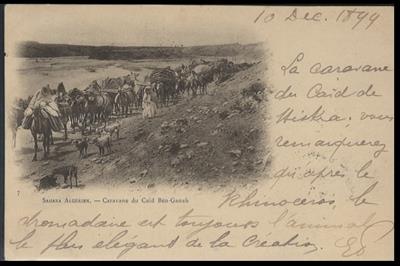 10 Dec. 1899
La caravane
du Caïd de
Biskra. vous
remarquerez
qu'après le
7
SAHARA ALGÉRIEN. — Caravane du Caïd Ben-Ganah
Rhinocéros, le
dromadaire est toujours l'animal
le plus élégant de la Création.